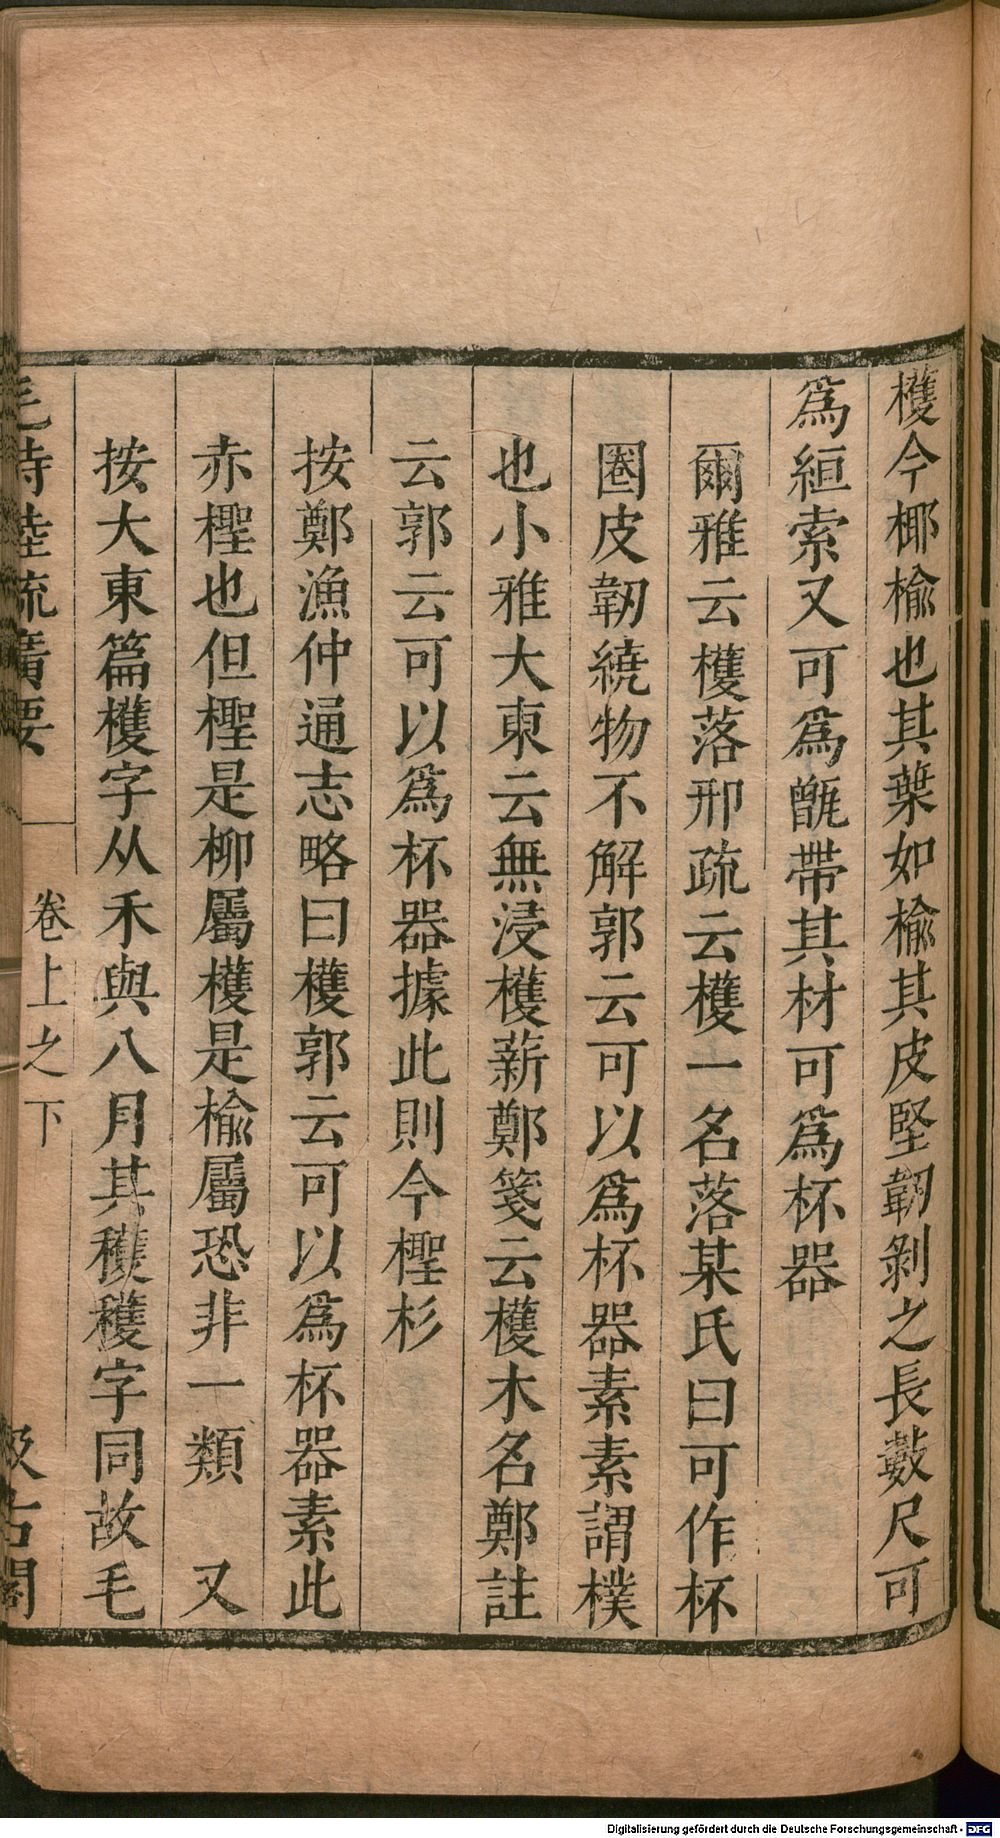 檴今梛榆也其葉如榆其皮堅韌剝之長數尺可
爲絙索又可爲甑帶其材可爲杯器
爾雅云檴落邢疏云檴一名落某氏曰可作杯
圈皮韌繞物不解郭云可以爲杯器素素謂樸
也小雅大東云無浸檴薪鄭箋云檴木名鄭註
云郭云可以爲杯器據此則今檉杉
按鄭漁仲通志略曰檴郭云可以爲杯器素此
赤檉也但檉是柳屬檴是榆屬恐非一類　又
按大東篇檴字从禾與八月其穫穫字同故毛
毛詩陸疏廣要　卷上之下　汲古閣
Digitalisierung gefördert durch die Deutsche Forschungsgemeinschaft - DFG